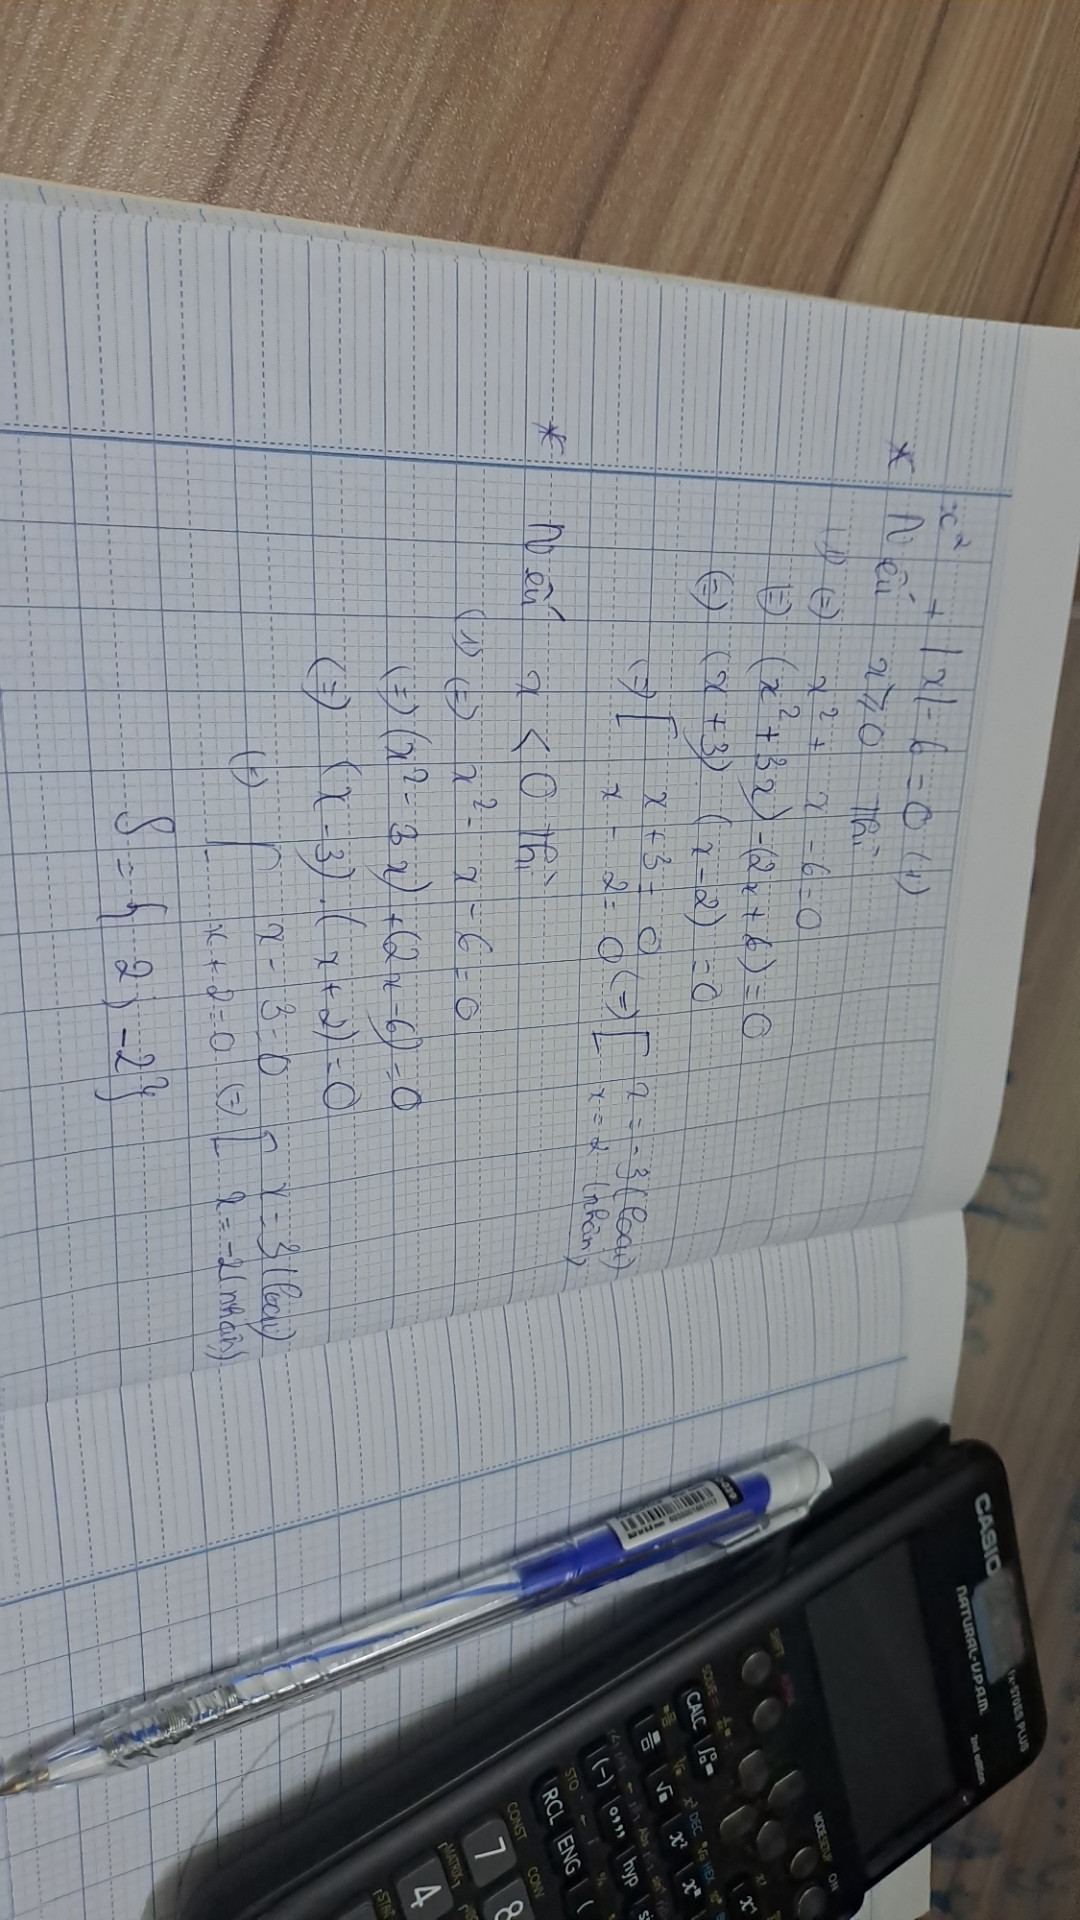 x² + |x| - 6 = 0 (1)
* Nếu x ⩾ 0 thì
(1) (=) x² + x - 6 = 0
(=) (x² + 3x) - (2x + 6) = 0
(=) (x + 3) . (x - 2) = 0
(=) [ x + 3 = 0
x - 2 = 0 (=) [ x = -3 (loại)
x = 2 (nhận)
* Nếu x < 0 thì
(1) (=) x² - x - 6 = 0
(=) (x² - 3x) + (2x - 6) = 0
(=) (x - 3) . (x + 2) = 0
(=) [ x - 3 = 0
x + 2 = 0 (=) [ x = 3 (loại)
x = -2 (nhận)
S = { 2; -2}
CASIO
fx-570ES PLUS
NATURAL-V.P.A.M.
2nd edition
SHIFT
MODE SETUP ON
SOLVE =
CALC
x⁻¹
√ x²
(-) hyp
STO
RCL ENG (
CONST CONV
7 8
MATRIX
4